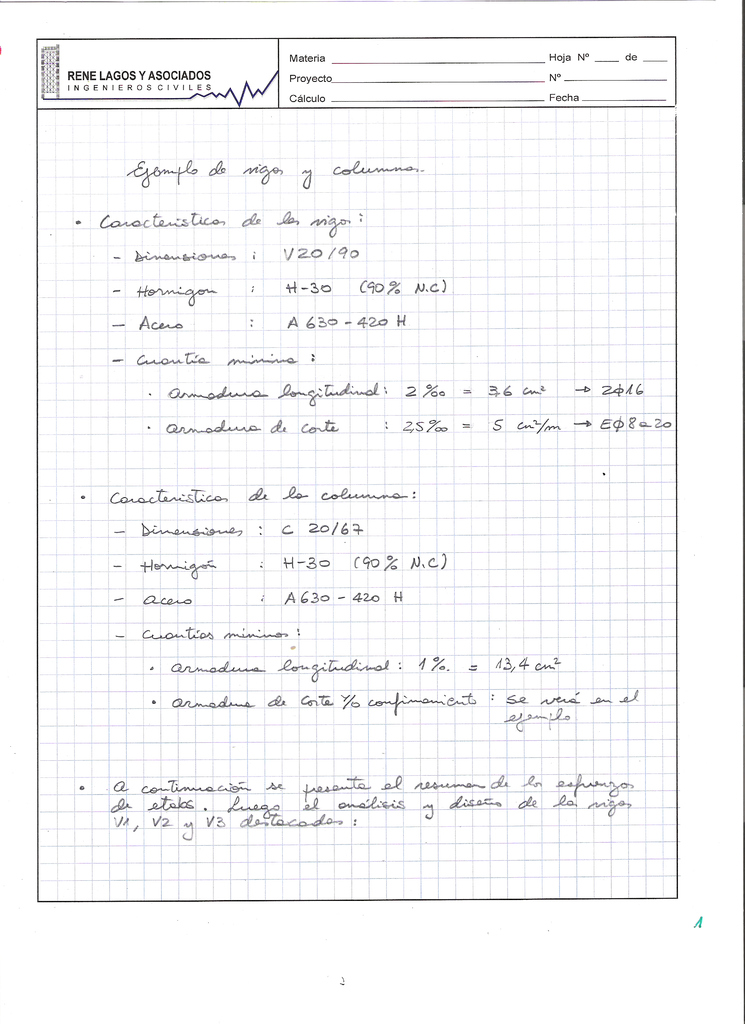 RENE LAGOS Y ASOCIADOS
INGENIEROS CIVILES
Materia
Hoja Nº ____ de ____
Proyecto
Nº
Cálculo
Fecha
Ejemplo de vigas y columnas.
• Características de las vigas:
- Dimensiones : V20/90
- Hormigon : H-30 (90% N.C)
- Acero : A 630-420 H
- Cuantía minima :
· Armadura longitudinal: 2 ‰ = 3,6 cm² → 2ϕ16
· Armadura de corte : 2,5‰ = 5 cm²/m → Eϕ8a20
• Características de la columna:
- Dimensiones : C 20/67
- Hormigón : H-30 (90% N.C)
- acero : A630-420 H
- Cuantías minimas:
· armadura longitudinal: 1%. = 13,4 cm²
• armadura de corte y/o confinamiento: se verá en el
ejemplo
• A continuación se presenta el resumen de los esfuerzos
de etabs. Luego el análisis y diseño de las vigas
V1, V2 y V3 destacadas:
1